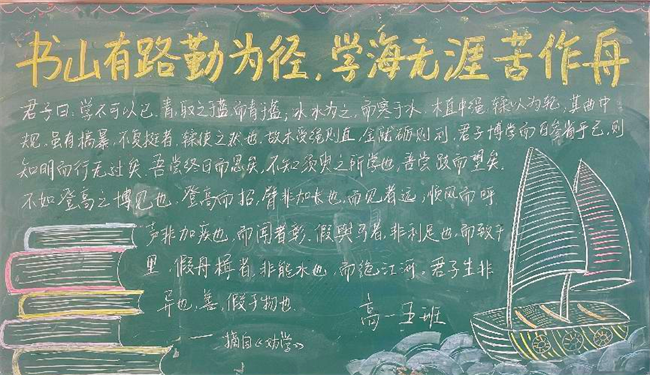 书山有路勤为径，学海无涯苦作舟
君子曰：学不可以已。青，取之于蓝，而青于蓝；冰，水为之，而寒于水。木直中绳，輮以为轮，其曲中
规，虽有槁暴，不复挺者，輮使之然也。故木受绳则直，金就砺则利，君子博学而日参省乎己，则
知明而行无过矣。吾尝终日而思矣，不如须臾之所学也，吾尝跂而望矣，
不如登高之博见也。登高而招，臂非加长也，而见者远，顺风而呼，
声非加疾也，而闻者彰。假舆马者，非利足也，而致千
里，假舟楫者，非能水也，而绝江河。君子生非
异也，善假于物也。
——摘自《劝学》
高一五班